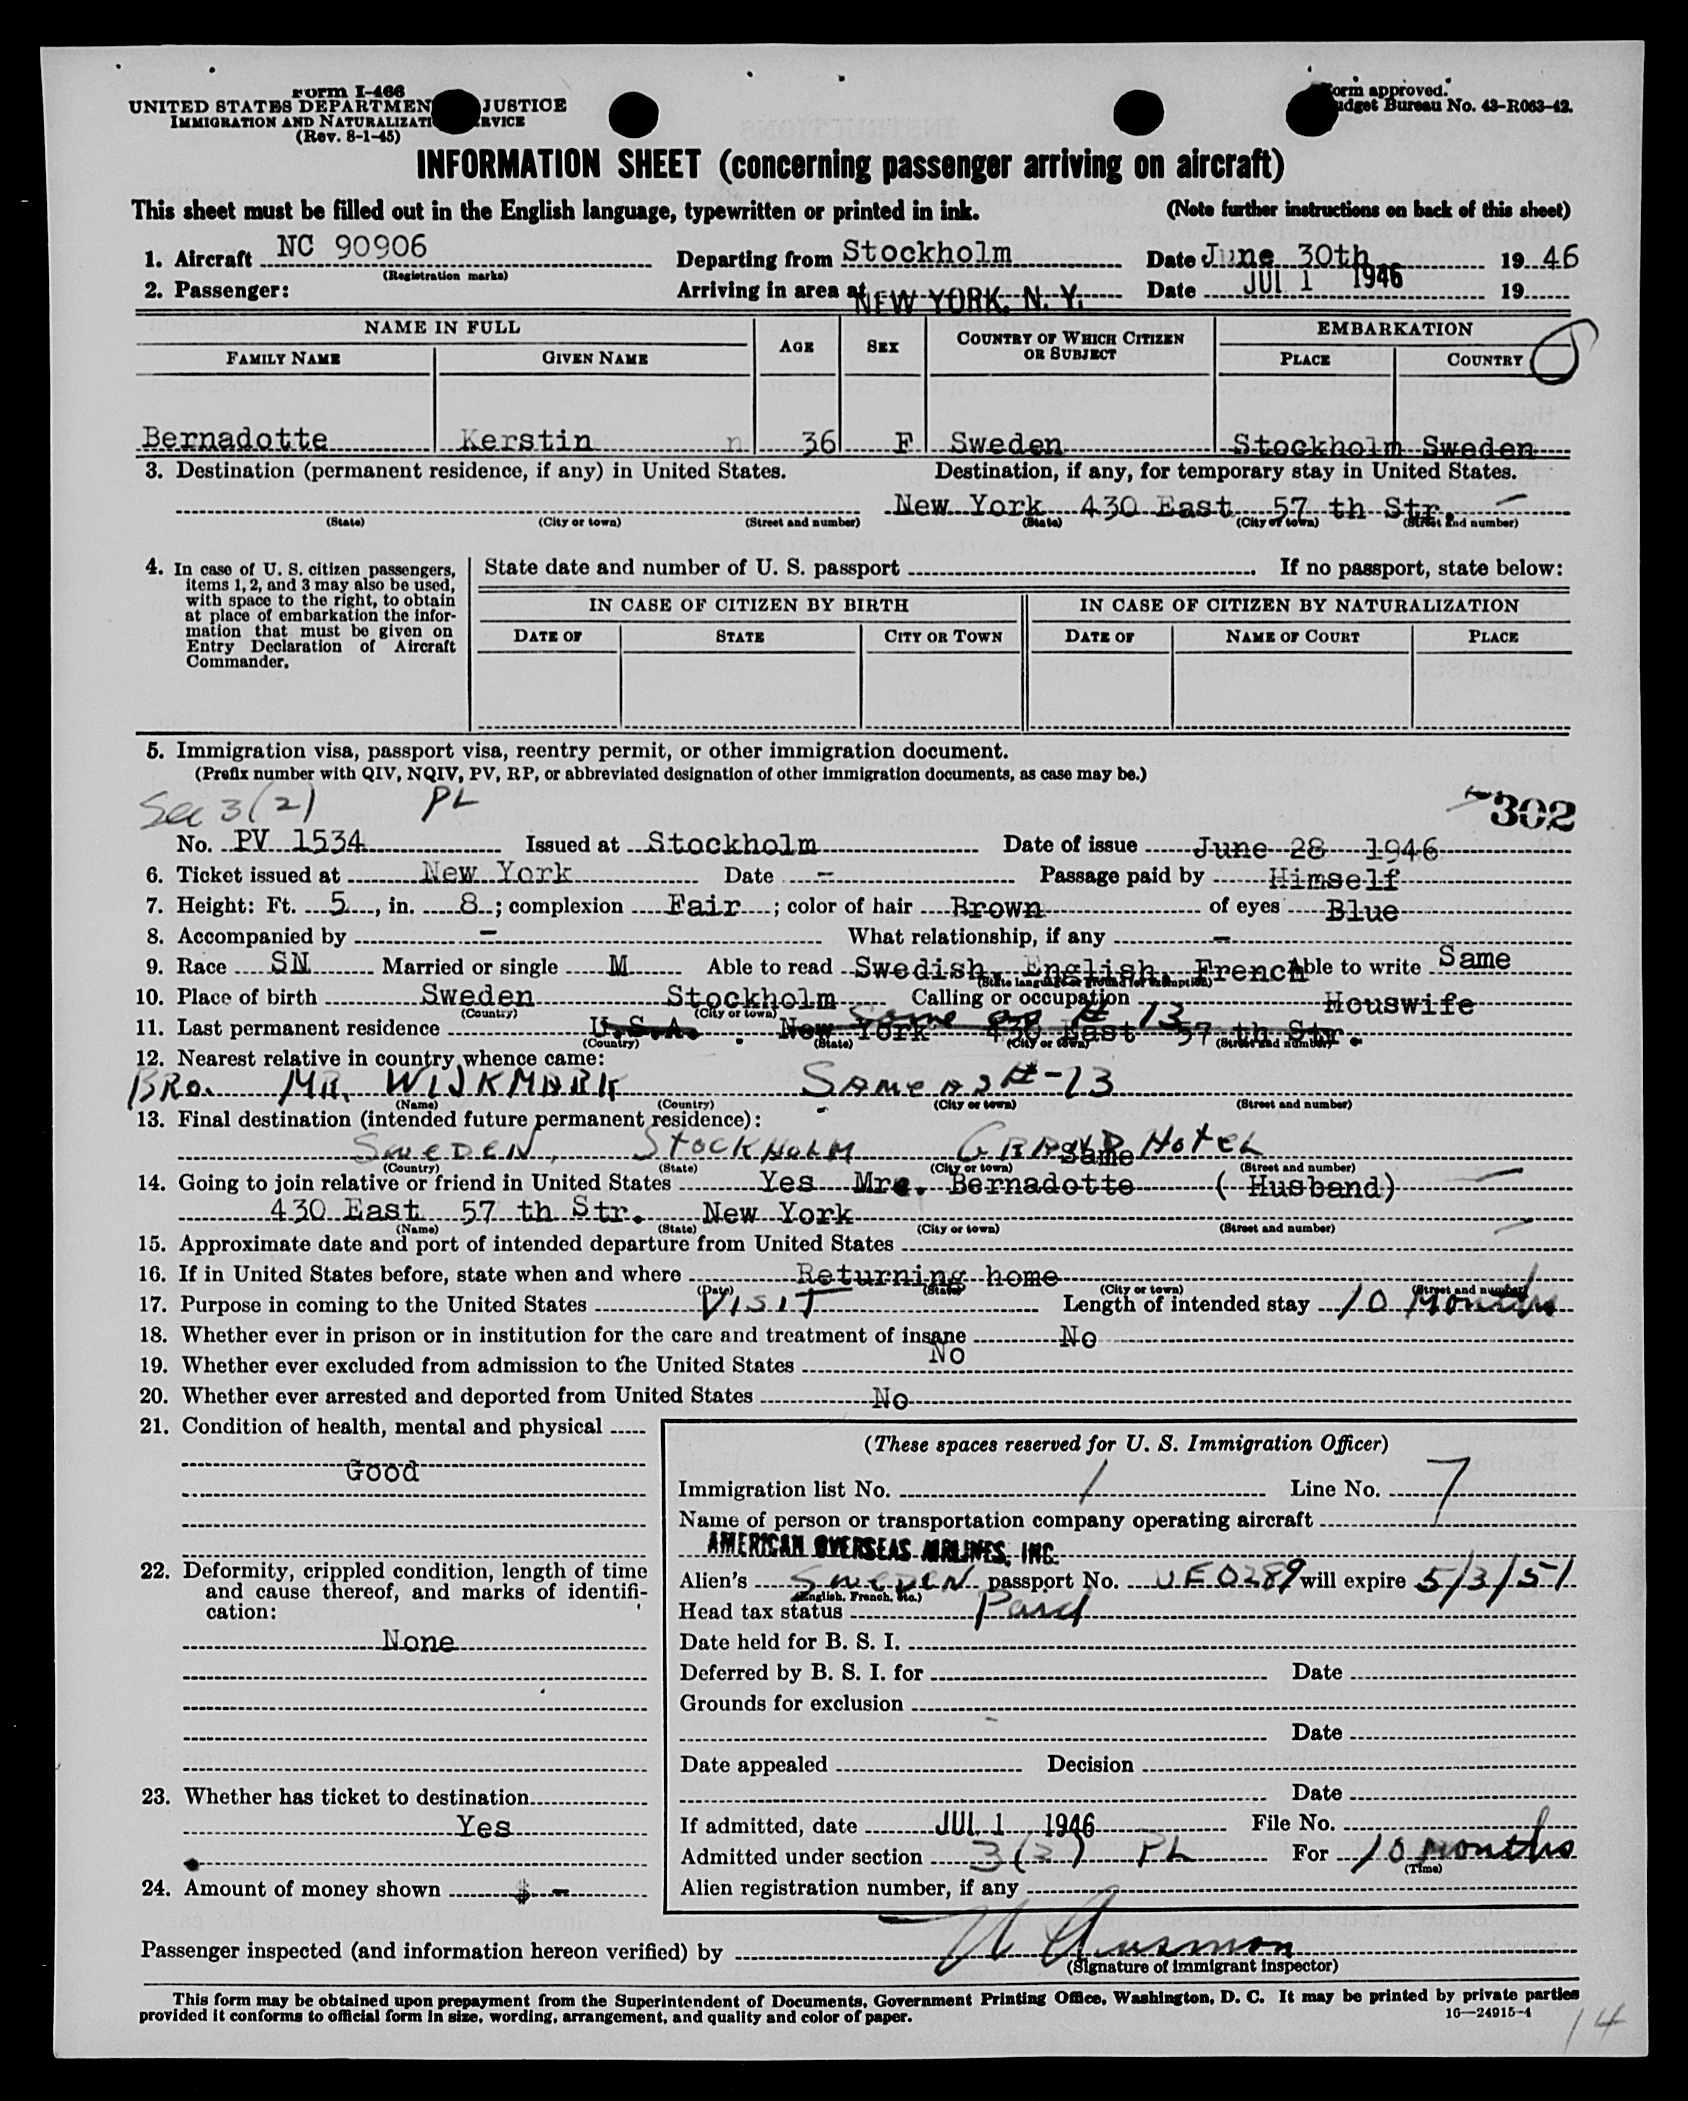 Form I-466
UNITED STATES DEPARTMENT JUSTICE
IMMIGRATION AND NATURALIZATI RVICE
(Rev. 8-1-45)
Form approved.
Budget Bureau No. 43-R063-42.
INFORMATION SHEET (concerning passenger arriving on aircraft)
This sheet must be filled out in the English language, typewritten or printed in ink. (Note further instructions on back of this sheet)
1. Aircraft NC 90906 Departing from Stockholm Date June 30th 19 46
(Registration marks)
2. Passenger: Arriving in area at NEW YORK, N. Y. Date JUL 1 1946 19
NAME IN FULL AGE SEX COUNTRY OF WHICH CITIZEN OR SUBJECT EMBARKATION
FAMILY NAME GIVEN NAME PLACE COUNTRY
Bernadotte Kerstin n 36 F Sweden Stockholm Sweden
3. Destination (permanent residence, if any) in United States. Destination, if any, for temporary stay in United States.
New York 430 East 57 th Str.
(State) (City or town) (Street and number) (State) (City or town) (Street and number)
4. In case of U. S. citizen passengers, items 1, 2, and 3 may also be used, with space to the right, to obtain at place of embarkation the information that must be given on Entry Declaration of Aircraft Commander.
State date and number of U. S. passport . If no passport, state below:
IN CASE OF CITIZEN BY BIRTH IN CASE OF CITIZEN BY NATURALIZATION
DATE OF STATE CITY OR TOWN DATE OF NAME OF COURT PLACE
5. Immigration visa, passport visa, reentry permit, or other immigration document.
(Prefix number with QIV, NQIV, PV, RP, or abbreviated designation of other immigration documents, as case may be.)
Sec 3(2) PL 302
No. PV 1534 Issued at Stockholm Date of issue June 28 1946
6. Ticket issued at New York Date - Passage paid by Himself
7. Height: Ft. 5, in. 8; complexion Fair; color of hair Brown of eyes Blue
8. Accompanied by - What relationship, if any -
9. Race SN Married or single M Able to read Swedish, English, French Able to write Same
(State language or ground for exemption)
10. Place of birth Sweden Stockholm Calling or occupation Houswife
(Country) (City or town)
Same as # 13
11. Last permanent residence U.S.A. New York 430 East 57 th Str.
(Country) (State) (City or town) (Street and number)
12. Nearest relative in country whence came:
BRO. MR. WIJKMARK SAME AS #-13
(Name) (Country) (City or town) (Street and number)
13. Final destination (intended future permanent residence):
SWEDEN, STOCKHOLM GRAND HOTEL Same
(Country) (State) (City or town) (Street and number)
14. Going to join relative or friend in United States Yes Mr. Bernadotte ( Husband)
430 East 57 th Str. New York
(Name) (State) (City or town) (Street and number)
15. Approximate date and port of intended departure from United States
16. If in United States before, state when and where Returning home
(Date) (State) (City or town) (Street and number)
17. Purpose in coming to the United States VISIT Length of intended stay 10 Months
18. Whether ever in prison or in institution for the care and treatment of insane No
19. Whether ever excluded from admission to the United States No
20. Whether ever arrested and deported from United States No
21. Condition of health, mental and physical
Good
22. Deformity, crippled condition, length of time and cause thereof, and marks of identification:
None
23. Whether has ticket to destination
Yes
24. Amount of money shown $ -
(These spaces reserved for U. S. Immigration Officer)
Immigration list No. 1 Line No. 7
Name of person or transportation company operating aircraft
AMERICAN OVERSEAS AIRLINES, INC.
Alien's SWEDEN passport No. UE0289 will expire 5/3/51
(English, French, etc.)
Head tax status Paid
Date held for B. S. I.
Deferred by B. S. I. for Date
Grounds for exclusion
Date
Date appealed Decision
Date
If admitted, date JUL 1 1946 File No.
Admitted under section 3(2) PL For 10 months
(Time)
Alien registration number, if any
Passenger inspected (and information hereon verified) by
(Signature of immigrant inspector)
This form may be obtained upon prepayment from the Superintendent of Documents, Government Printing Office, Washington, D. C. It may be printed by private parties
provided it conforms to official form in size, wording, arrangement, and quality and color of paper. 16—24915-4
14